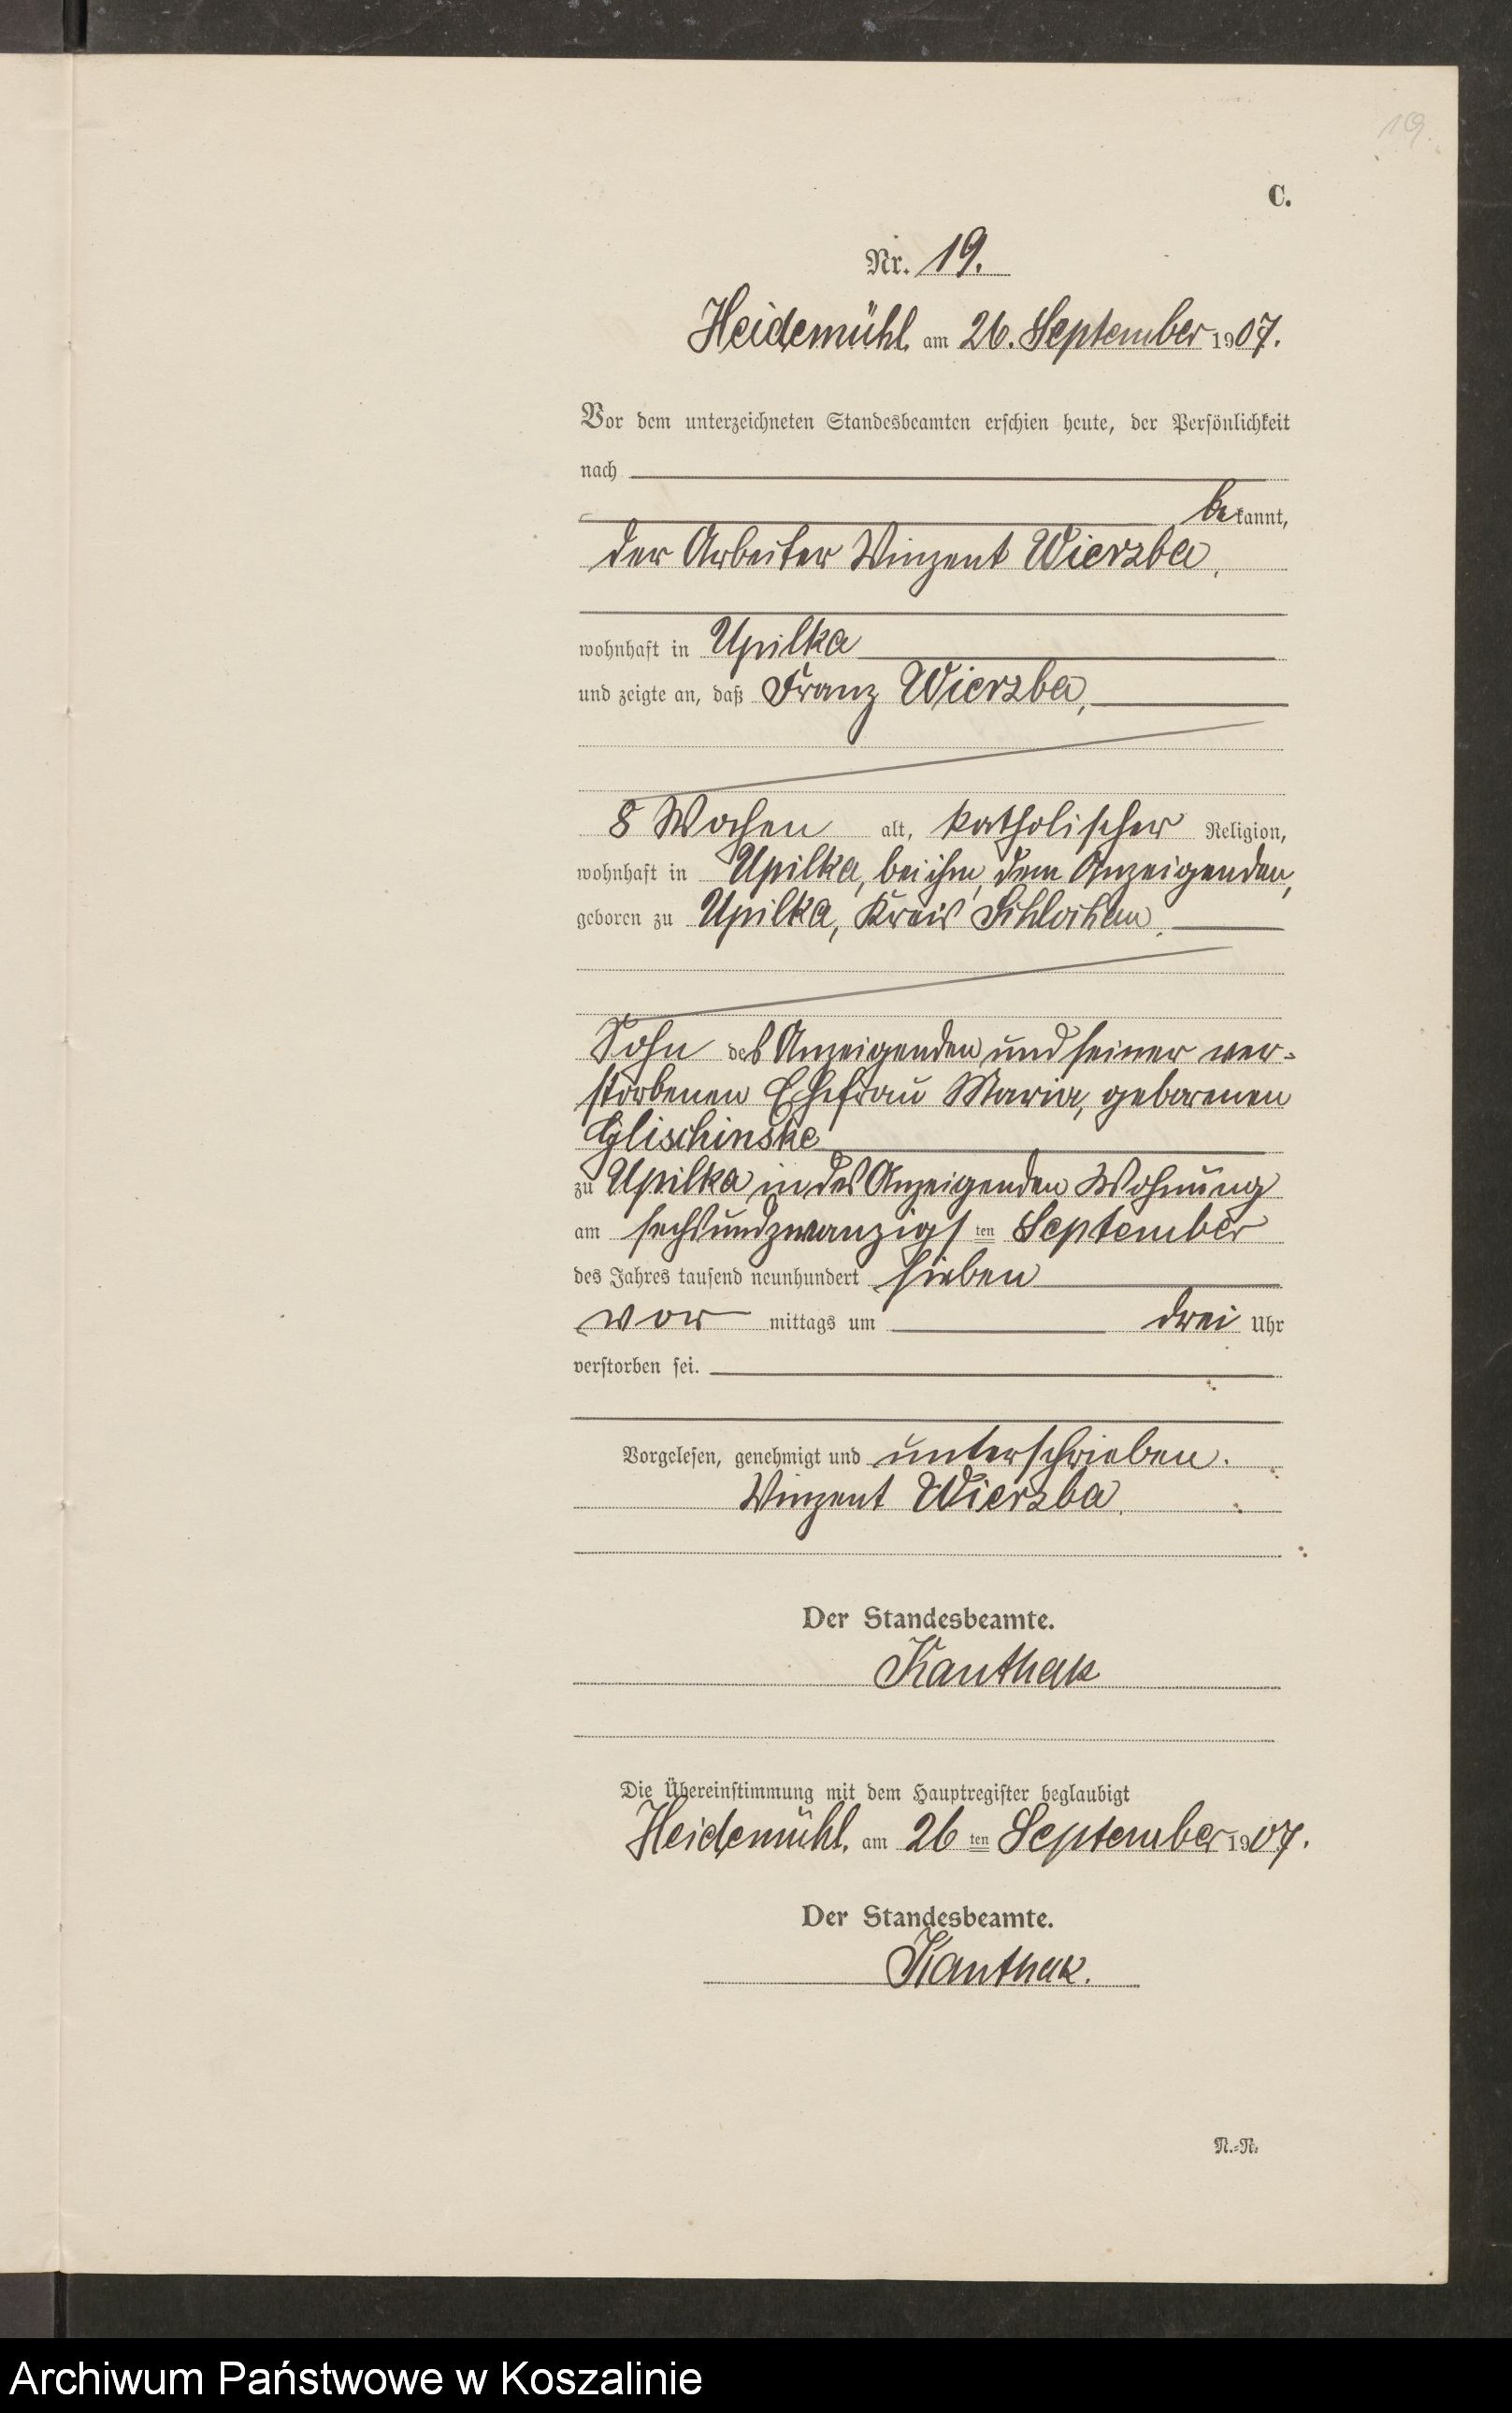 19.
C.
Nr. 19.
Heidemühl am 26. September 1907.
Vor dem unterzeichneten Standesbeamten erschien heute, der Persönlichkeit
nach
bekannt,
der Arbeiter Vinzent Wierzba,
wohnhaft in Upilka
und zeigte an, daß Franz Wierzba,
8 Wochen alt, katholischer Religion,
wohnhaft in Upilka, bei ihm, dem Anzeigenden,
geboren zu Upilka, Kreis Schlochau,
Sohn des Anzeigenden und seiner ver-
storbenen Ehefrau Maria, geborenen
Glischinske
zu Upilka in des Anzeigenden Wohnung
am sechsundzwanzigsten September
des Jahres tausend neunhundert sieben
vor mittags um drei Uhr
verstorben sei.
Vorgelesen, genehmigt und unterschrieben.
Vinzent Wierzba.
Der Standesbeamte.
Kanthak
Die Übereinstimmung mit dem Hauptregister beglaubigt
Heidemühl, am 26ten September 1907.
Der Standesbeamte.
Kanthak.
N.-R.
Archiwum Państwowe w Koszalinie